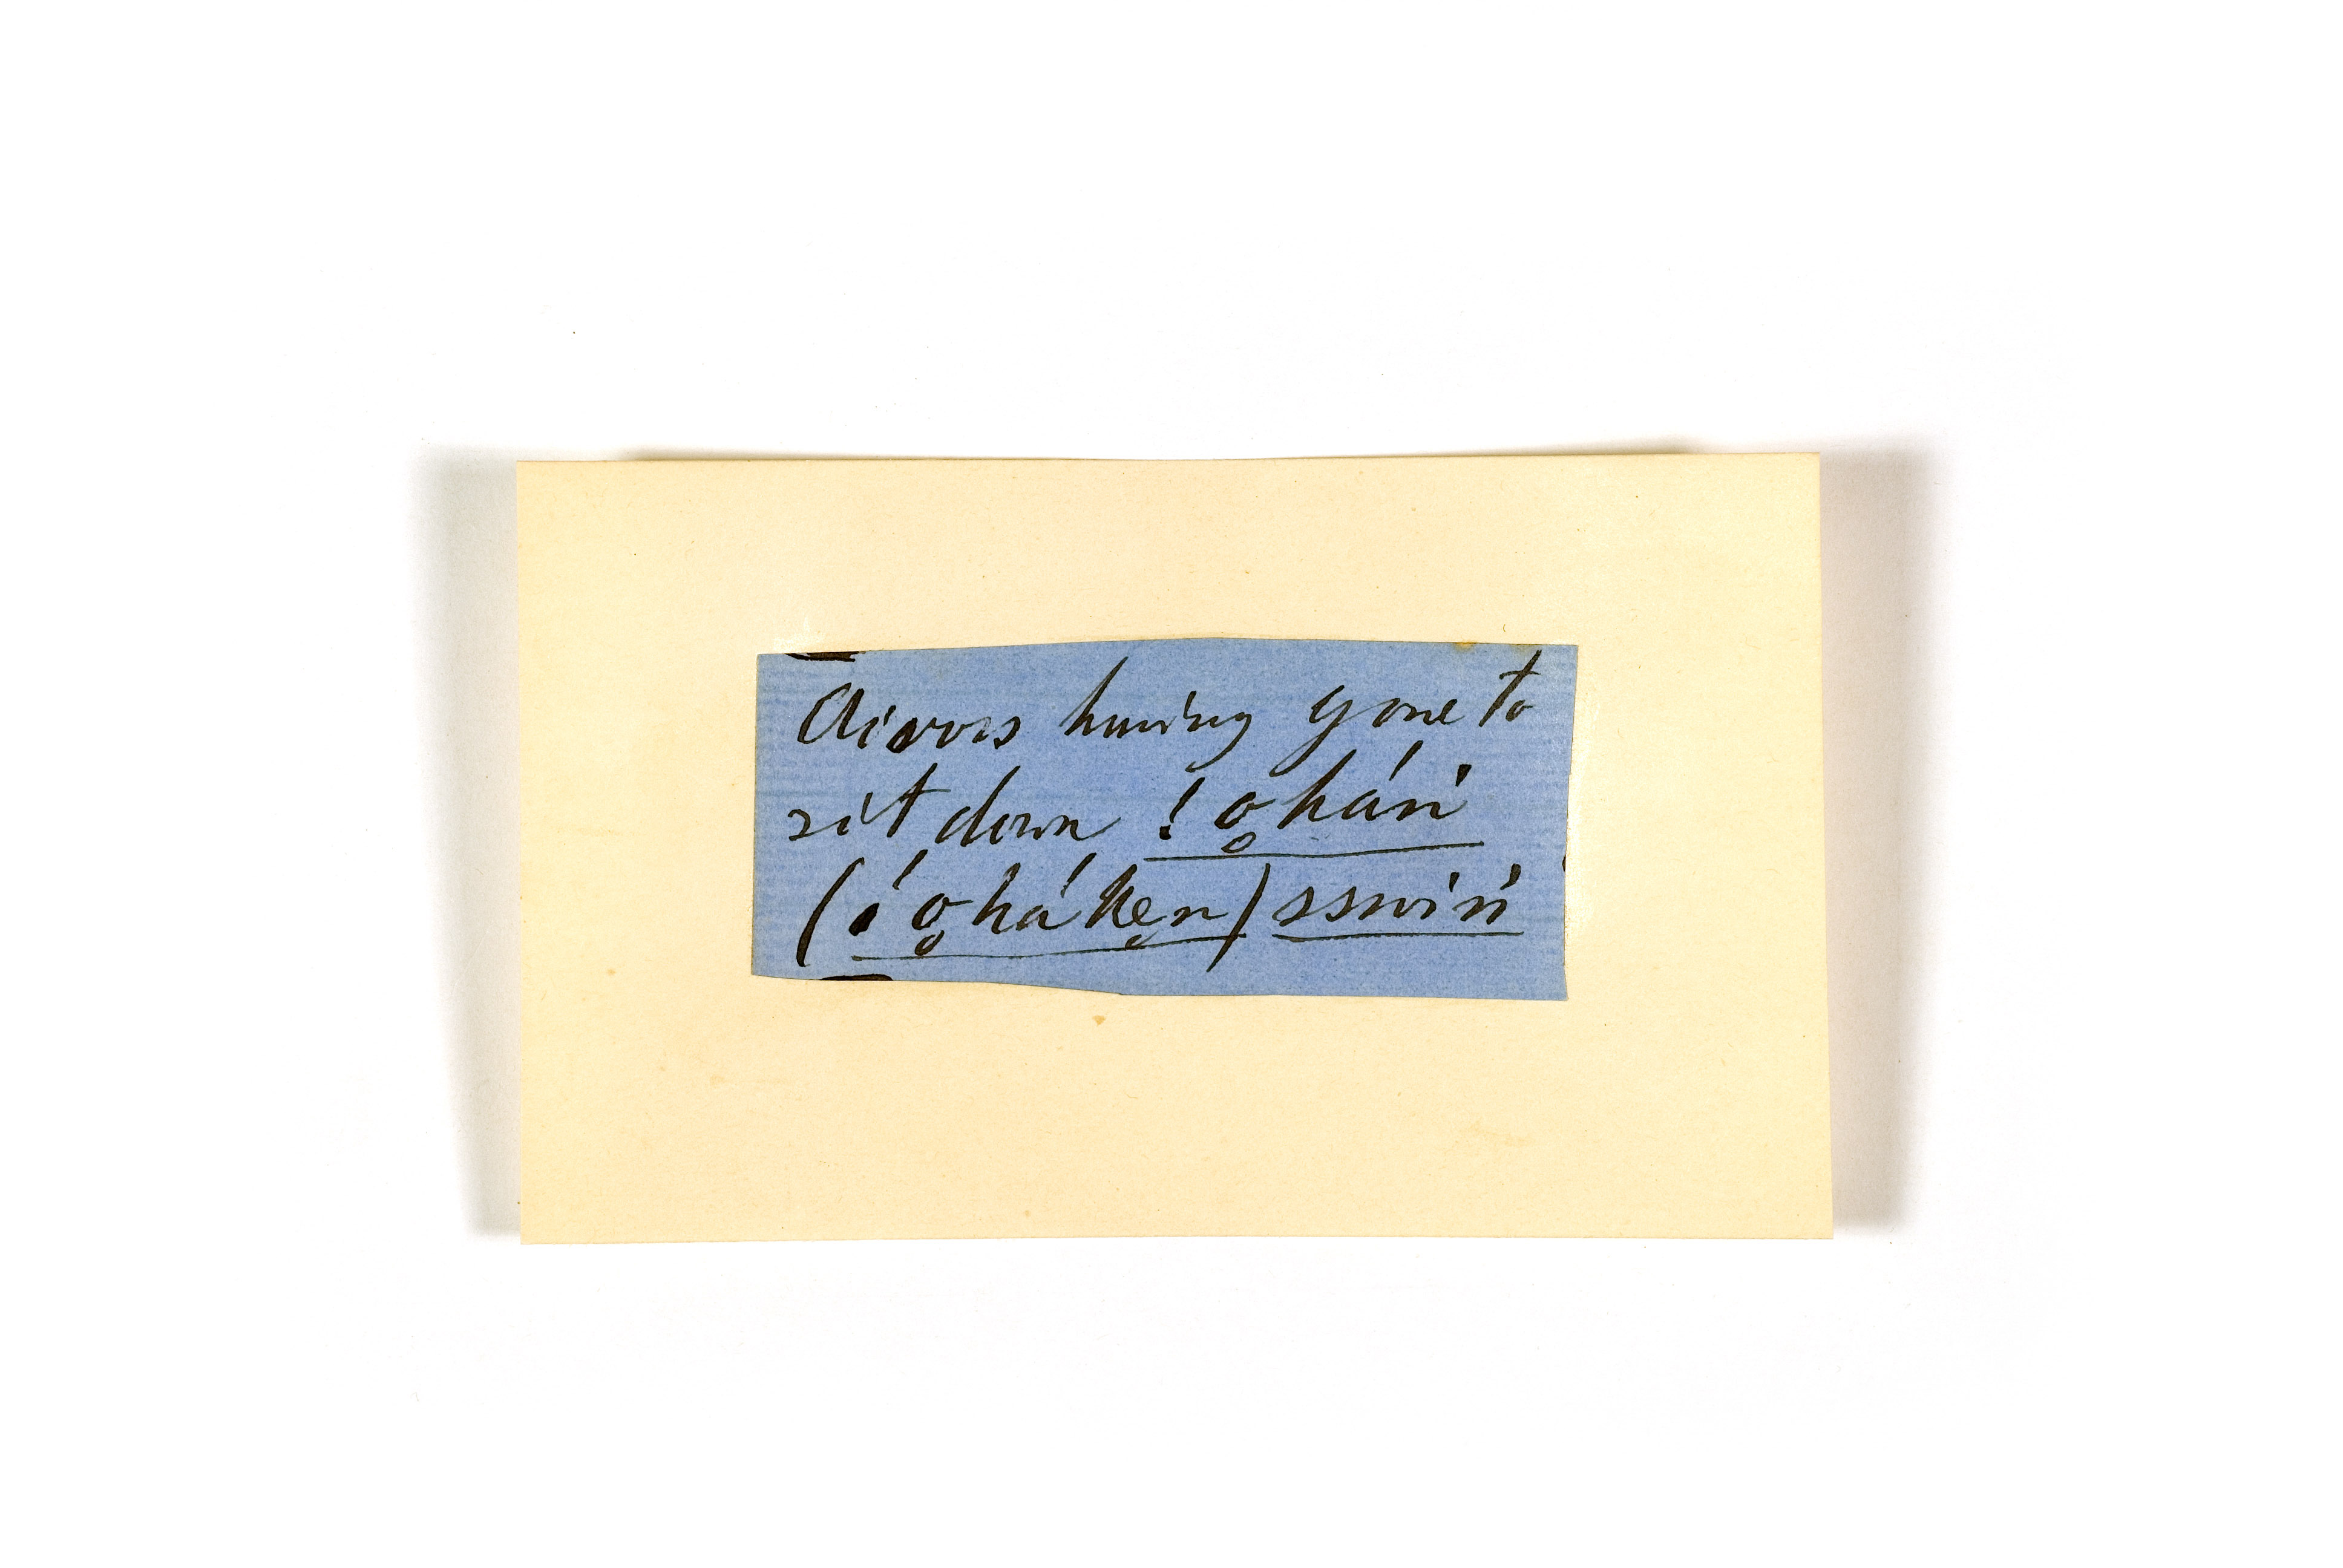 Across having gone to
sit down !o̥háń
(!o̥háke̥n) sswíń